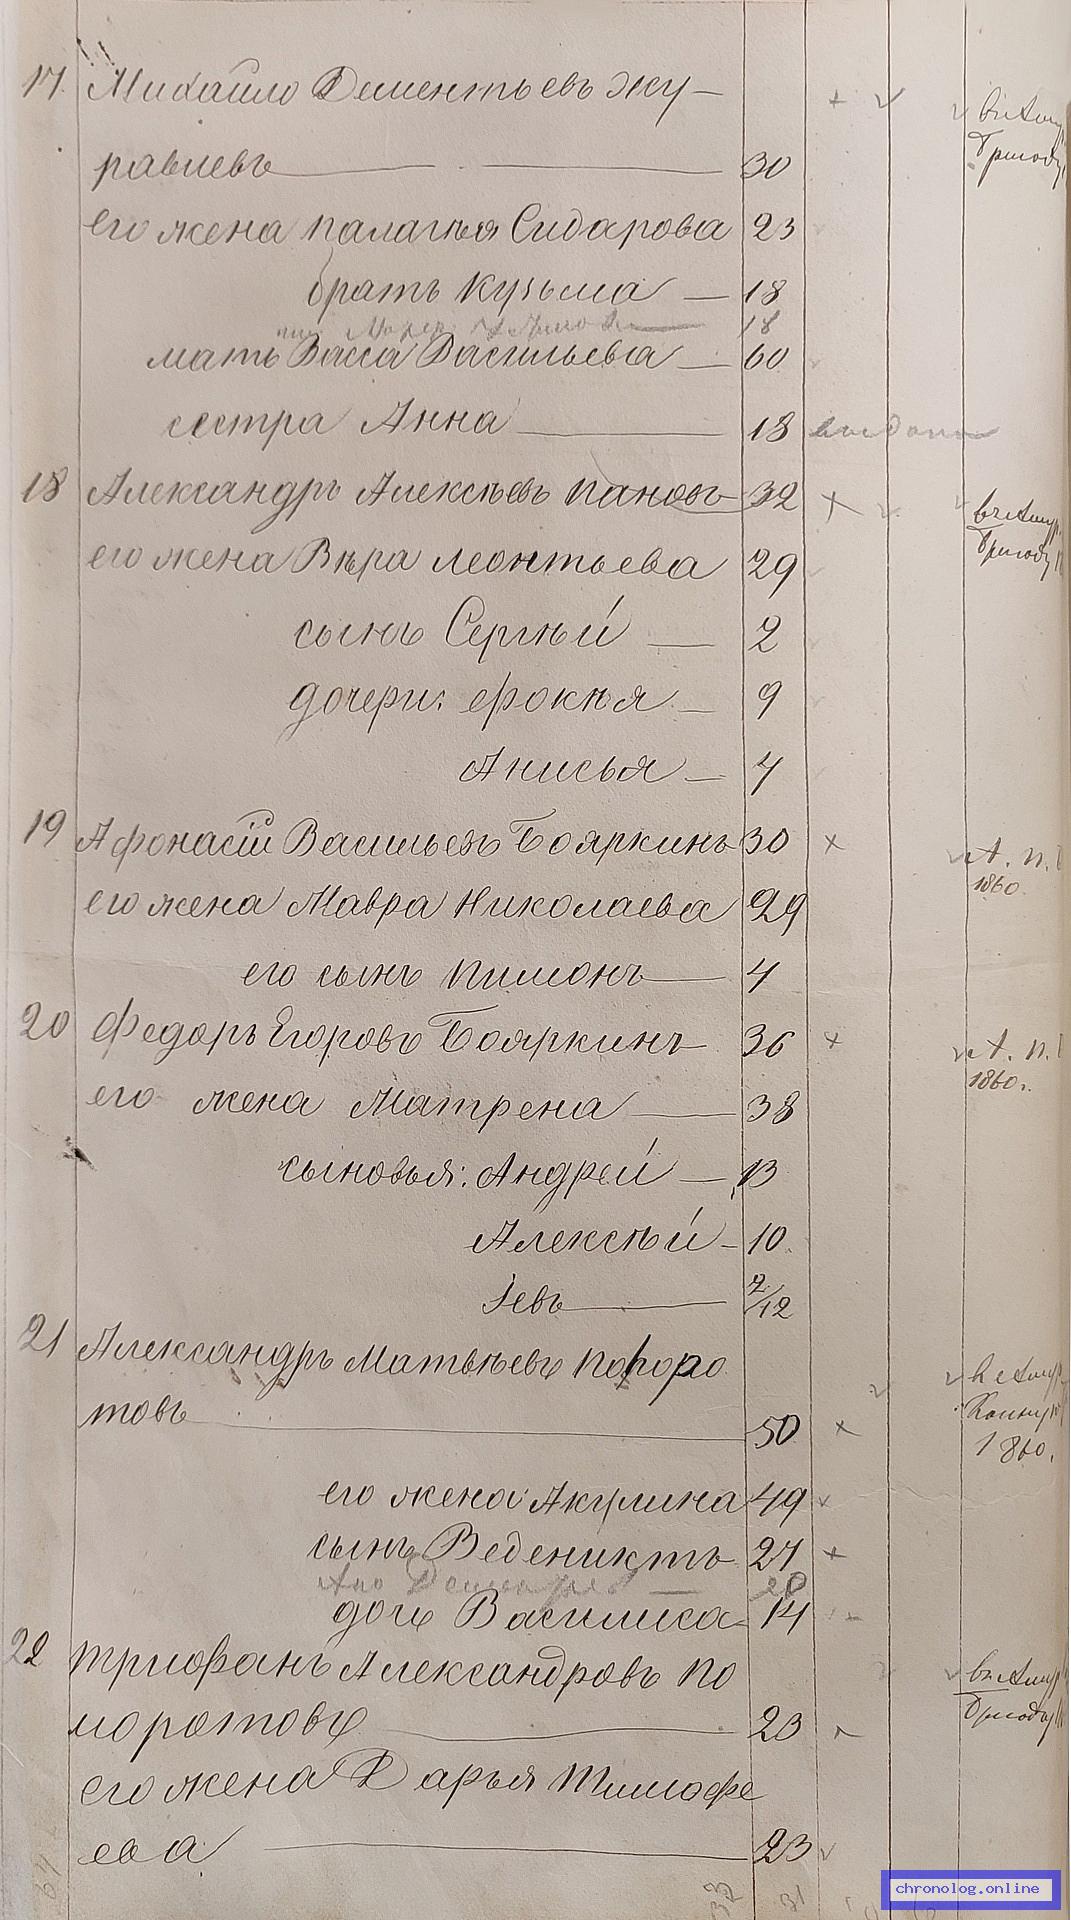 17 Михайло Дементьевъ Жу-
равлевъ 30
его жена Палагѣя Сидарова 23
братъ Кузьма — 18
18
мать Васса Васильева — 60
сестра Анна 18 выдана
18 Александръ Алексѣевъ Пановъ 32
его жена Вѣра Леонтьева 29
сынъ Сергѣй — 2
дочери: Фокѣя — 9
Анисья — 4
19 Афонасій Васильевъ Бояркинъ 30
1860.
его жена Мавра Николаева 29
его сынъ Пимонъ 4
20 Федоръ Егоровъ Бояркинъ 36
1860г.
его жена Матрена 38
сыновья: Андрей — 13
Алексѣй — 10
Іевъ 7/12
21 Александръ Матвѣевъ Поморо
товъ 50
1860.
его жена Акулина 49
сынъ Ведениктъ 27
20
дочь Василиса 14
22 Трифанъ Александровъ По
моротовъ 23
его жена Дарья Тимофе
ева 23
33 31
chronolog.online